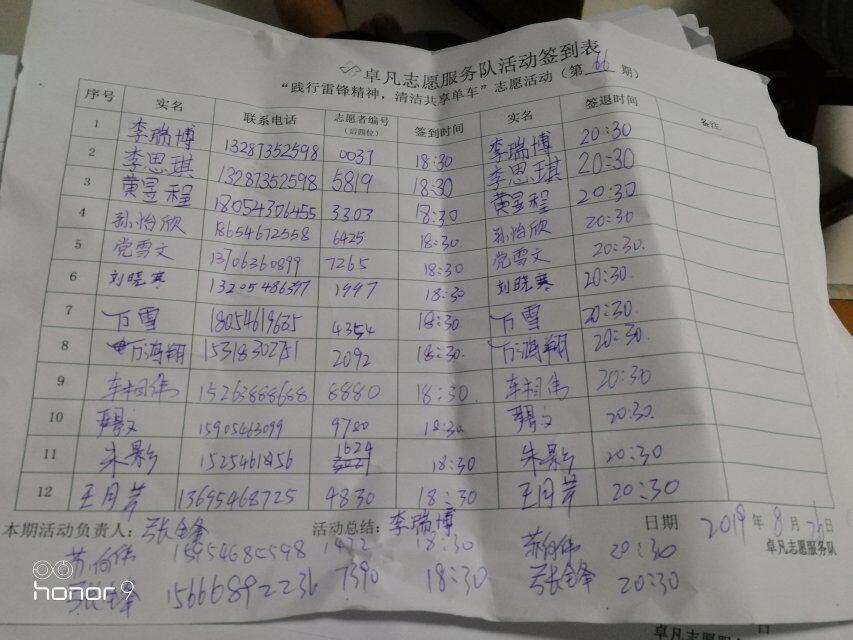 卓凡志愿服务队活动签到表
“践行雷锋精神，清洁共享单车”志愿活动（第 66 期）
序号 实名 联系电话 志愿者编号（后四位） 签到时间 实名 签退时间 备注
1 李瑞博 13287352598 0037 18:30 李瑞博 20:30
2 李思琪 13287352598 5819 18:30 李思琪 20:30
3 黄昱程 18054306455 3303 18:30 黄昱程 20:30
4 孙怡欣 18654672558 6425 18:30 孙怡欣 20:30
5 党雪文 13706360899 7265 18:30 党雪文 20:30.
6 刘晓寒 13205486397 1997 18:30 刘晓寒 20:30.
7 万雪 18054619635 4354 18:30. 万雪 20:30.
8 万鸿翔 15318302751 2092 18:30. 万鸿翔 20:30.
9 车相伟 15263868668 8880 18:30. 车相伟 20:30
10 15905463099 9780 18:30. 20:30.
11 朱影 15254618956 1624 18:30 朱影 20:30
12 王月芹 13695468725 4830 18:30 王月芹 20:30
本期活动负责人：张金锋 活动总结：李瑞博 日期 2019 年 8 月 26 日
卓志愿服务队
苏向伟 18:30 苏向伟 20:30
张金锋 15666892236 7390 18:30 张金锋 20:30
honor 9
日
卓凡志愿服务队